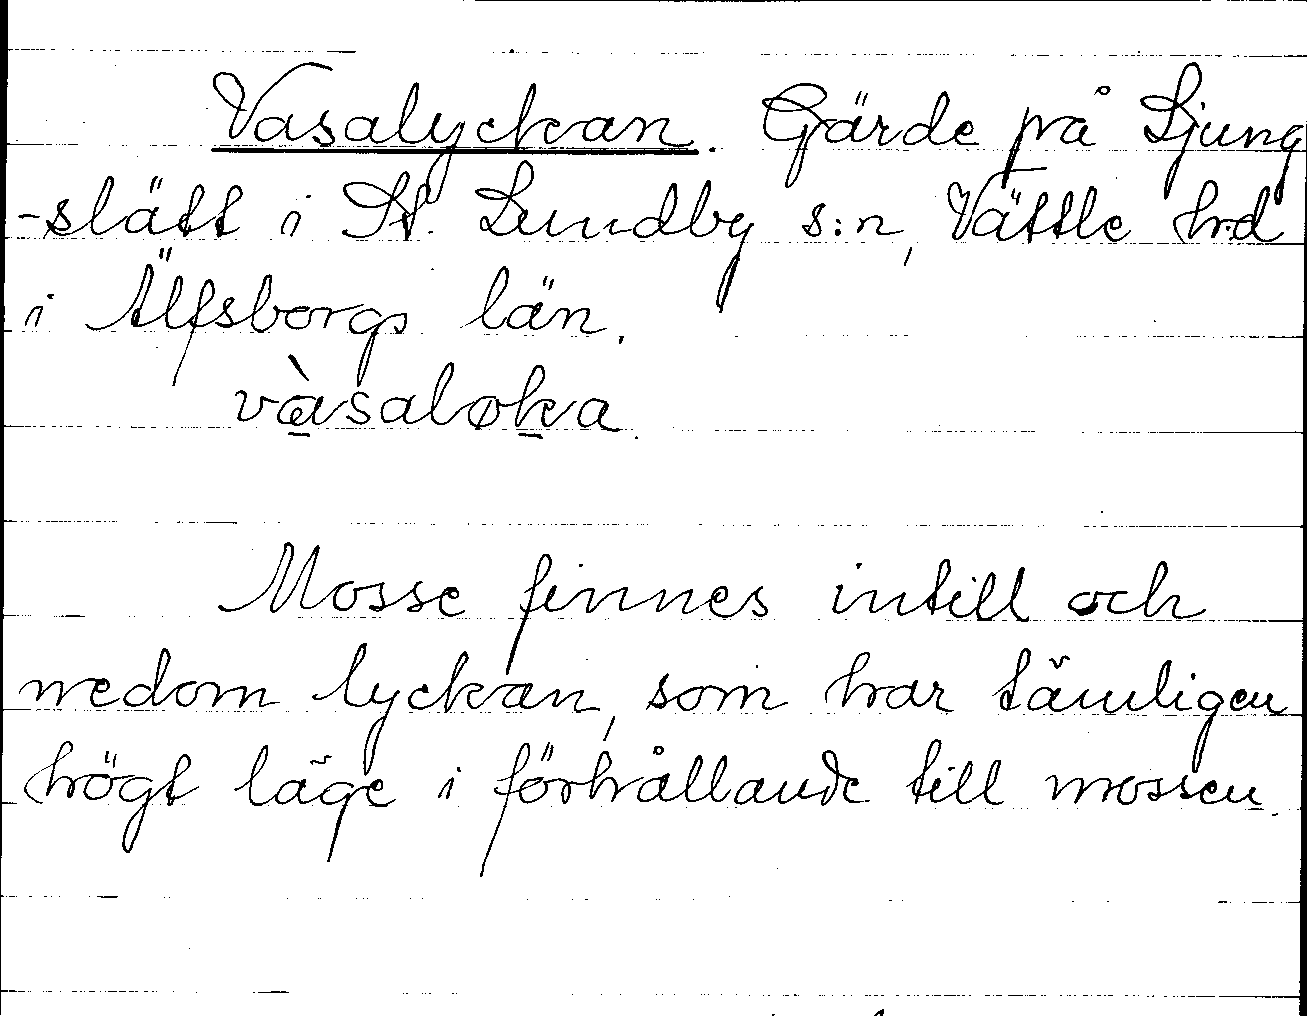 Vasalyckan. Gärde på Ljung
-slätt i St. Lundby s:n, Vättle hrd
i Älfsborgs län.
vàsaløka.
Mosse finnes intill och
nedom lyckan, som har tämligen
högt läge i förhållande till mossen.